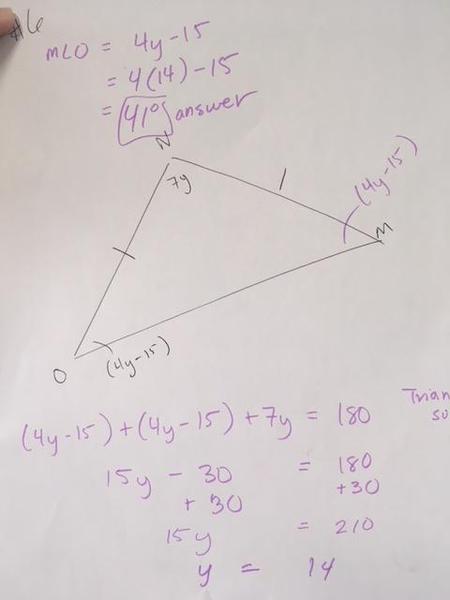 #6
m∠O = 4y-15
= 4(14)-15
= 41° answer
N
7y
(4y-15)
M
O
(4y-15)
(4y-15)+(4y-15)+7y = 180
15y - 30 = 180
+30 +30
15y = 210
y = 14